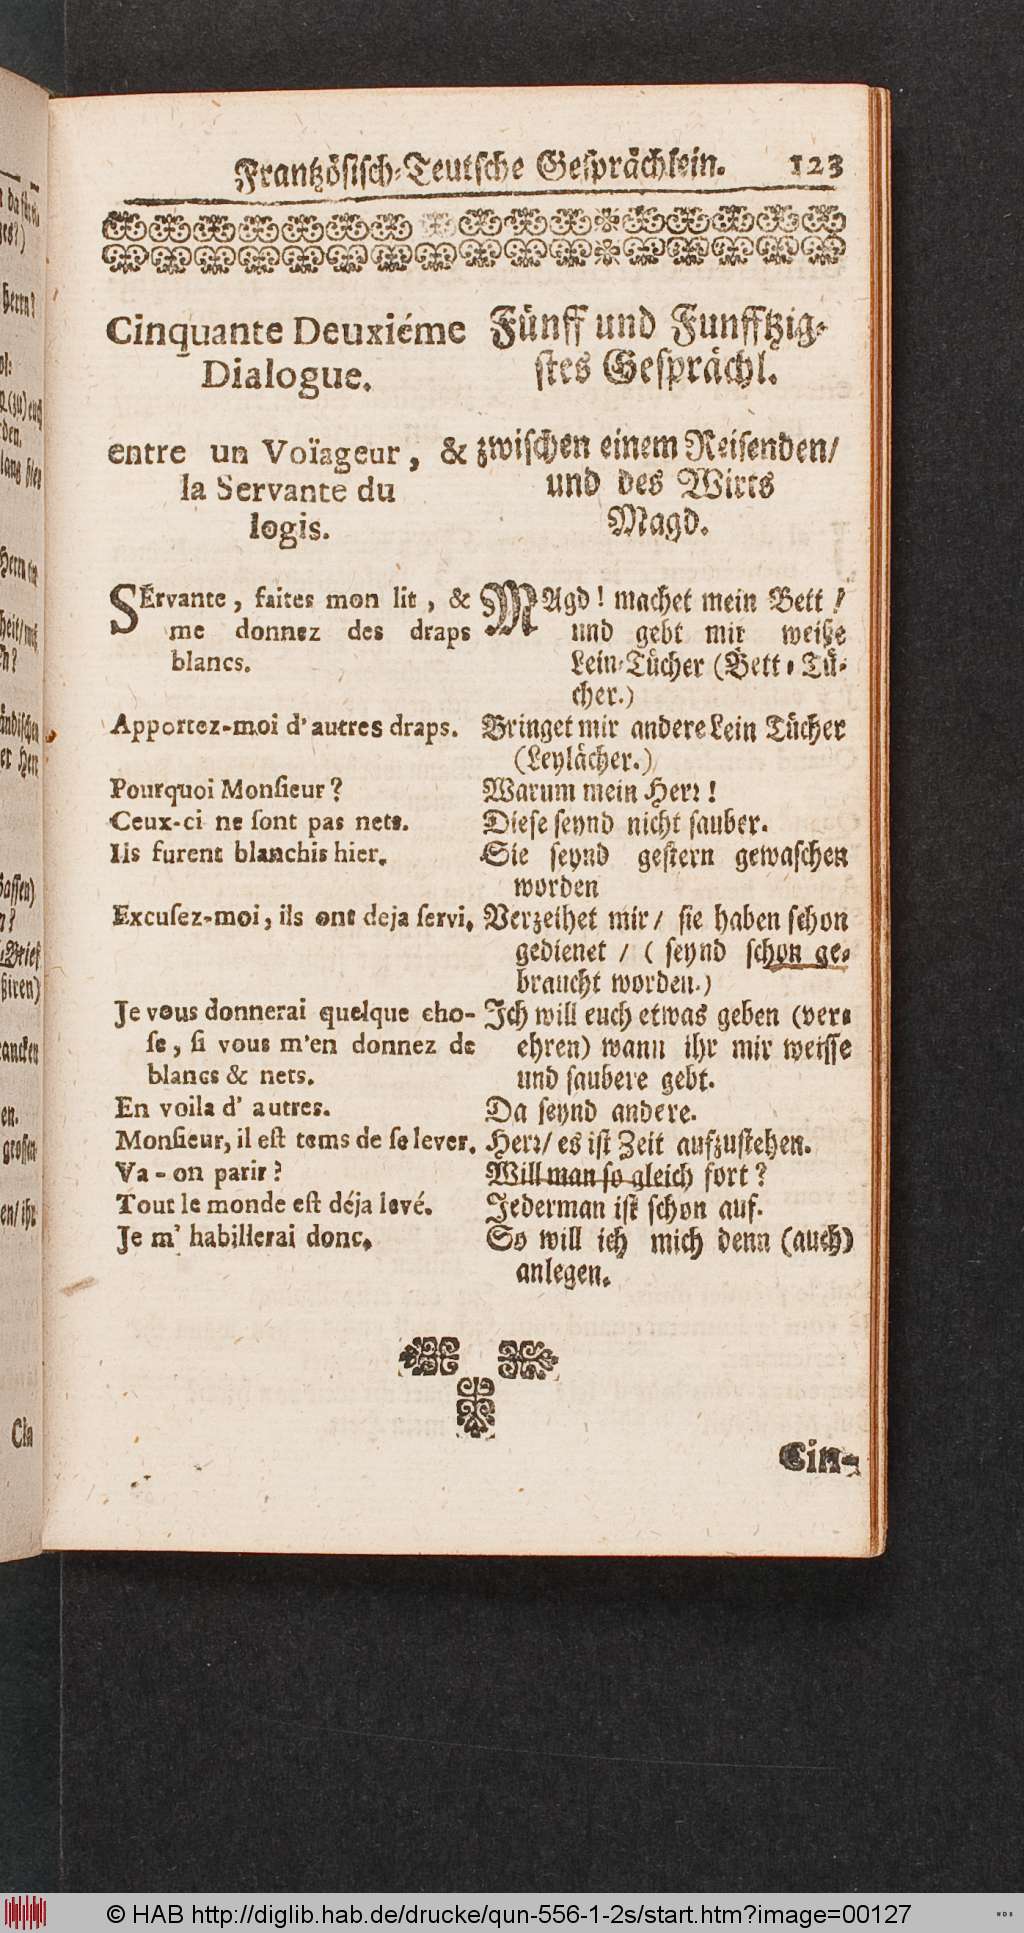 Frantzösisch-Teutsche Gesprächlein. 123
Cinquante Deuxiéme
Dialogue.
entre un Voïageur, &
la Servante du
logis.
SErvante, faites mon lit, &
me donnez des draps
blancs.
Apportez-moi d'autres draps.
Pourquoi Monsieur?
Ceux-ci ne sont pas nets.
Ils furent blanchis hier.
Excusez-moi, ils ont deja servi.
Je vous donnerai quelque cho-
se, si vous m'en donnez de
blancs & nets.
En voila d' autres.
Monsieur, il est tems de se lever.
Va-on parir?
Tout le monde est déja levé.
Je m' habillerai donc.
Fünff und Funfftzig-
stes Gesprächl.
zwischen einem Reisenden/
und des Wirts
Magd.
MAgd! machet mein Bett/
und gebt mir weiße
Lein-Tücher (Bett-Tü-
cher.)
Bringet mir andere Lein Tücher
(Leylächer.)
Warum mein Herr!
Diese seynd nicht sauber.
Sie seynd gestern gewaschen
worden
Verzeihet mir/ sie haben schon
gedienet / ( seynd schon ge-
braucht worden.)
Ich will euch etwas geben (ver-
ehren) wann ihr mir weisse
und saubere gebt.
Da seynd andere.
Herr/ es ist Zeit aufzustehen.
Will man so gleich fort?
Jederman ist schon auf.
So will ich mich denn (auch)
anlegen.
Cin-
© HAB http://diglib.hab.de/drucke/qun-556-1-2s/start.htm?image=00127